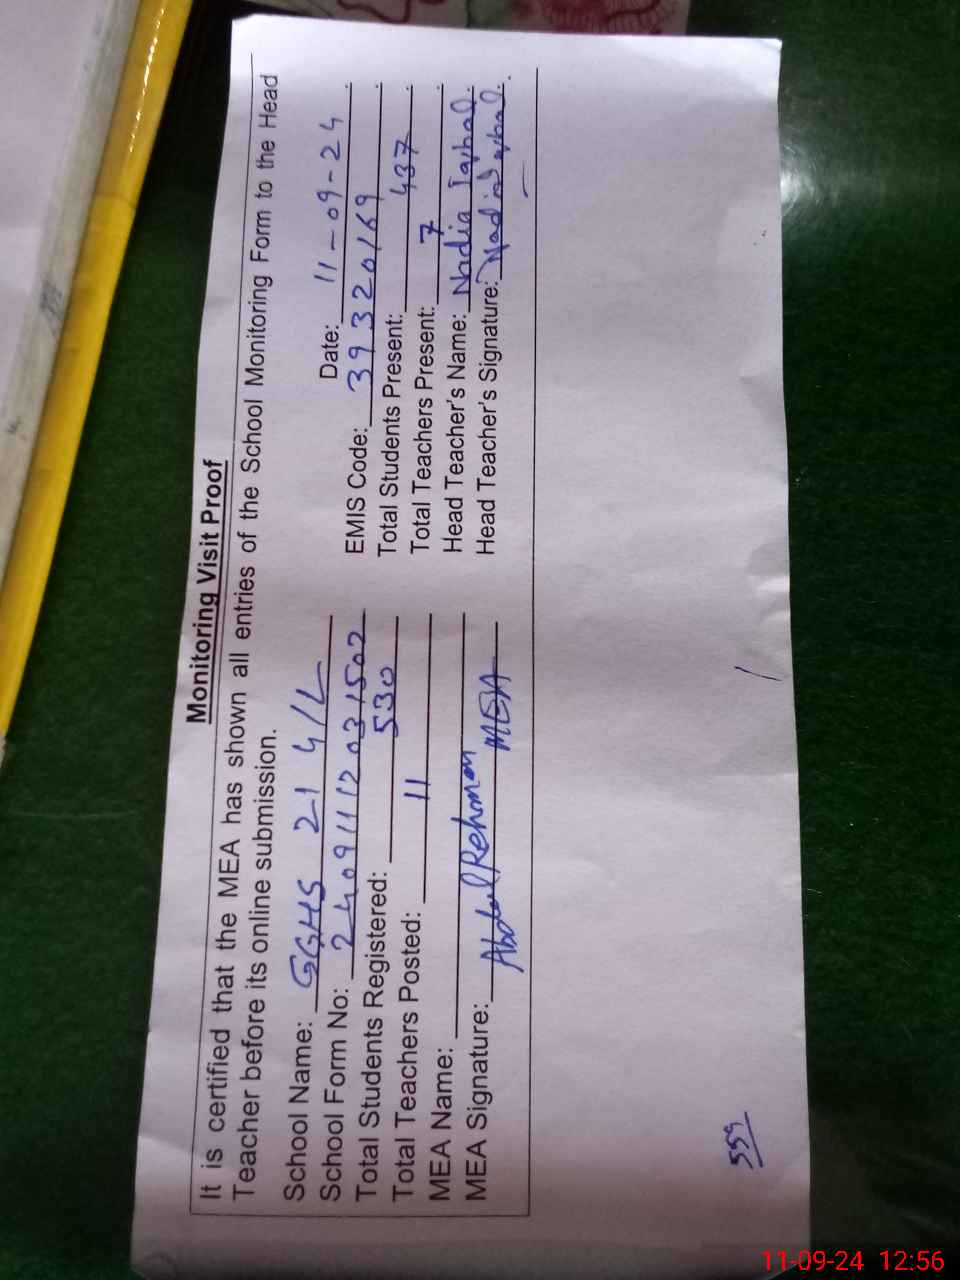 Monitoring Visit Proof
It is certified that the MEA has shown all entries of the School Monitoring Form to the Head
Teacher before its online submission.
School Name: GGHS 21 4/L Date: 11-09-24
School Form No: 24091112031502 EMIS Code: 39320169
Total Students Registered: 530 Total Students Present: 437
Total Teachers Posted: 11 Total Teachers Present: 7
MEA Name: Abdul Rehman Head Teacher's Name: Nadia Iqbal
MEA Signature: MEA Head Teacher's Signature: Nadia Iqbal
559
11-09-24 12:56